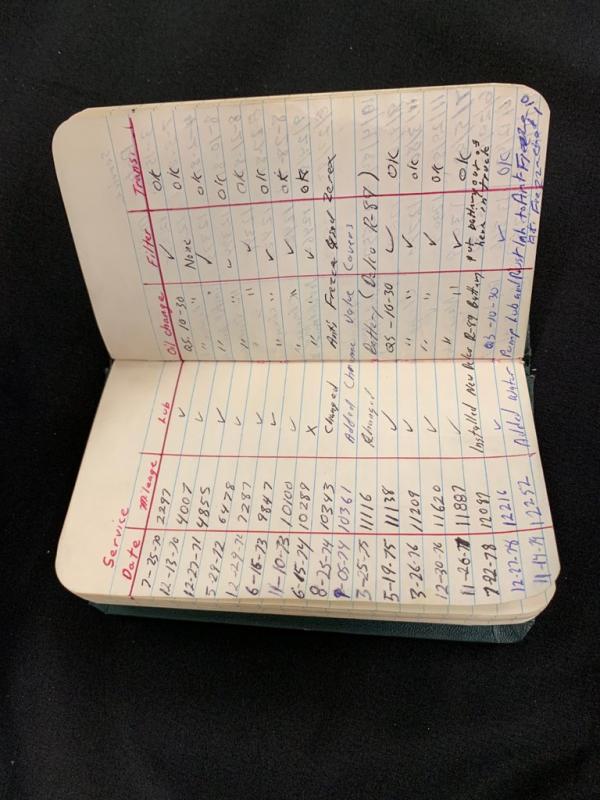 Service
Date Mileage Lub Oil change Filter Transi
7-25-70 2297 ✓ QS 10-30 ✓ OK
12-13-70 4007 ✓ " None OK
12-27-71 4855 ✓ " ✓ OK
5-29-72 6478 ✓ " ✓ OK
12-29-72 7287 ✓ " ✓ OK
6-15-73 9847 ✓ " ✓ OK
11-10-73 10100 ✓ " ✓ OK
6-15-74 10289 X " ✓ OK
8-23-74 10343 Changed Anti Freeze Zerex
9-05-74 10361 Added Chrome Valve Covers
3-25-75 11116 Changed Battery (Delco R-89)
5-19-75 11138 ✓ QS-10-30 ✓ OK
3-26-76 11209 ✓ " ✓ OK
12-30-76 11620 ✓ " ✓ OK
11-26-77 11887 ✓ " ✓ OK
7-22-78 12097 Installed New Delco R-89 Battery put battery out of
here in truck
12-27-78 12216 ✓ QS-10-30 ✓ OK
11-17-79 12252 Added Water Pump Lub and Rust Inb to Anti Freeze